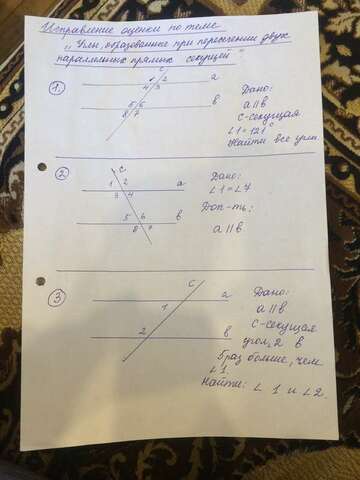 Исправление оценки по теме
„Углы, образованные при пересечении двух
параллельных прямых секущей"
1.
c
2
4 3
a
5 6
8 7
b
Дано:
a || b
c - секущая
∠1 = 121°
Найти все углы.
2
c
1 2
3 4
a
5 6
8 7
b
Дано:
∠1 = ∠7
Доп-ть:
a || b
3
c
1
a
2
b
Дано:
a || b
c - секущая
угол 2 в
5 раз больше, чем
∠1.
Найти: ∠1 и ∠2.